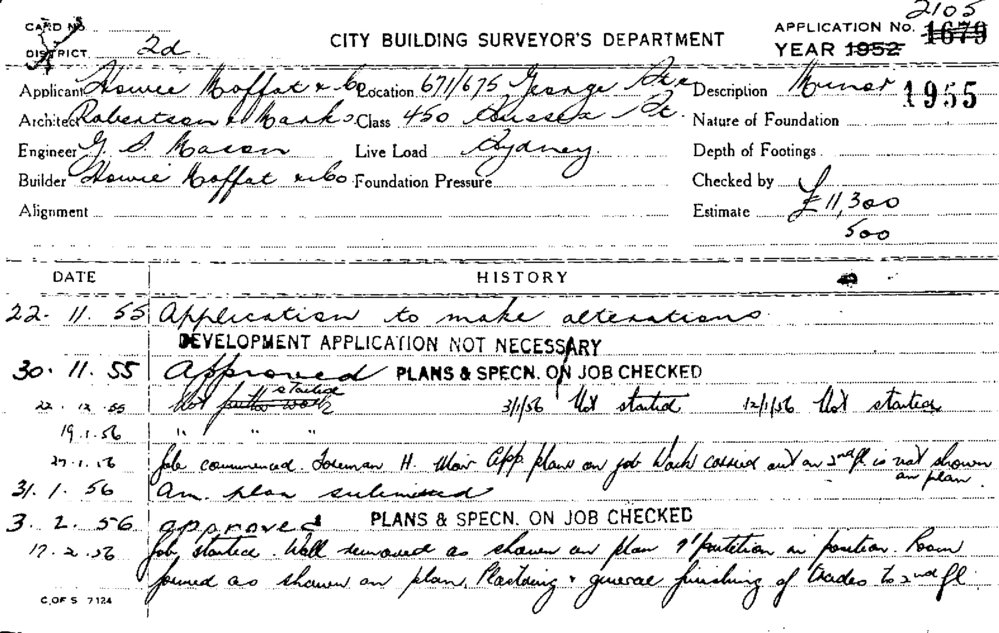 CARD No.
DISTRICT 2d.
CITY BUILDING SURVEYOR'S DEPARTMENT
APPLICATION No. 1679 2105
YEAR 1952 1955
Applicant Howie Moffat & Co Location 671/675 George St & Description Minor
Architect Robertson & Marks Class 450 Sussex St. Nature of Foundation
Engineer G. S. Mason Live Load Sydney. Depth of Footings
Builder Howie Moffat & Co Foundation Pressure Checked by
Alignment Estimate £11,300
500
DATE HISTORY
22. 11. 55 Application to make alterations
DEVELOPMENT APPLICATION NOT NECESSARY
30. 11. 55 Approved PLANS & SPECN. ON JOB CHECKED
22. 12. 55 Not started 3/1/56 Not started 12/1/56 Not started
19.1.56 " " "
27.1.56 Job commenced. Foreman H. Moir App plans on job Work carried out on 2nd fl is not shown on plan.
31. 1. 56 Am. plan submitted
3. 2. 56 approved PLANS & SPECN. ON JOB CHECKED
17. 2. 56 Job started. Wall removed as shown on plan & partition in position. Room
formed as shown on plan. Plastering & general finishing of trades to 2nd fl.
C. OF S 7124